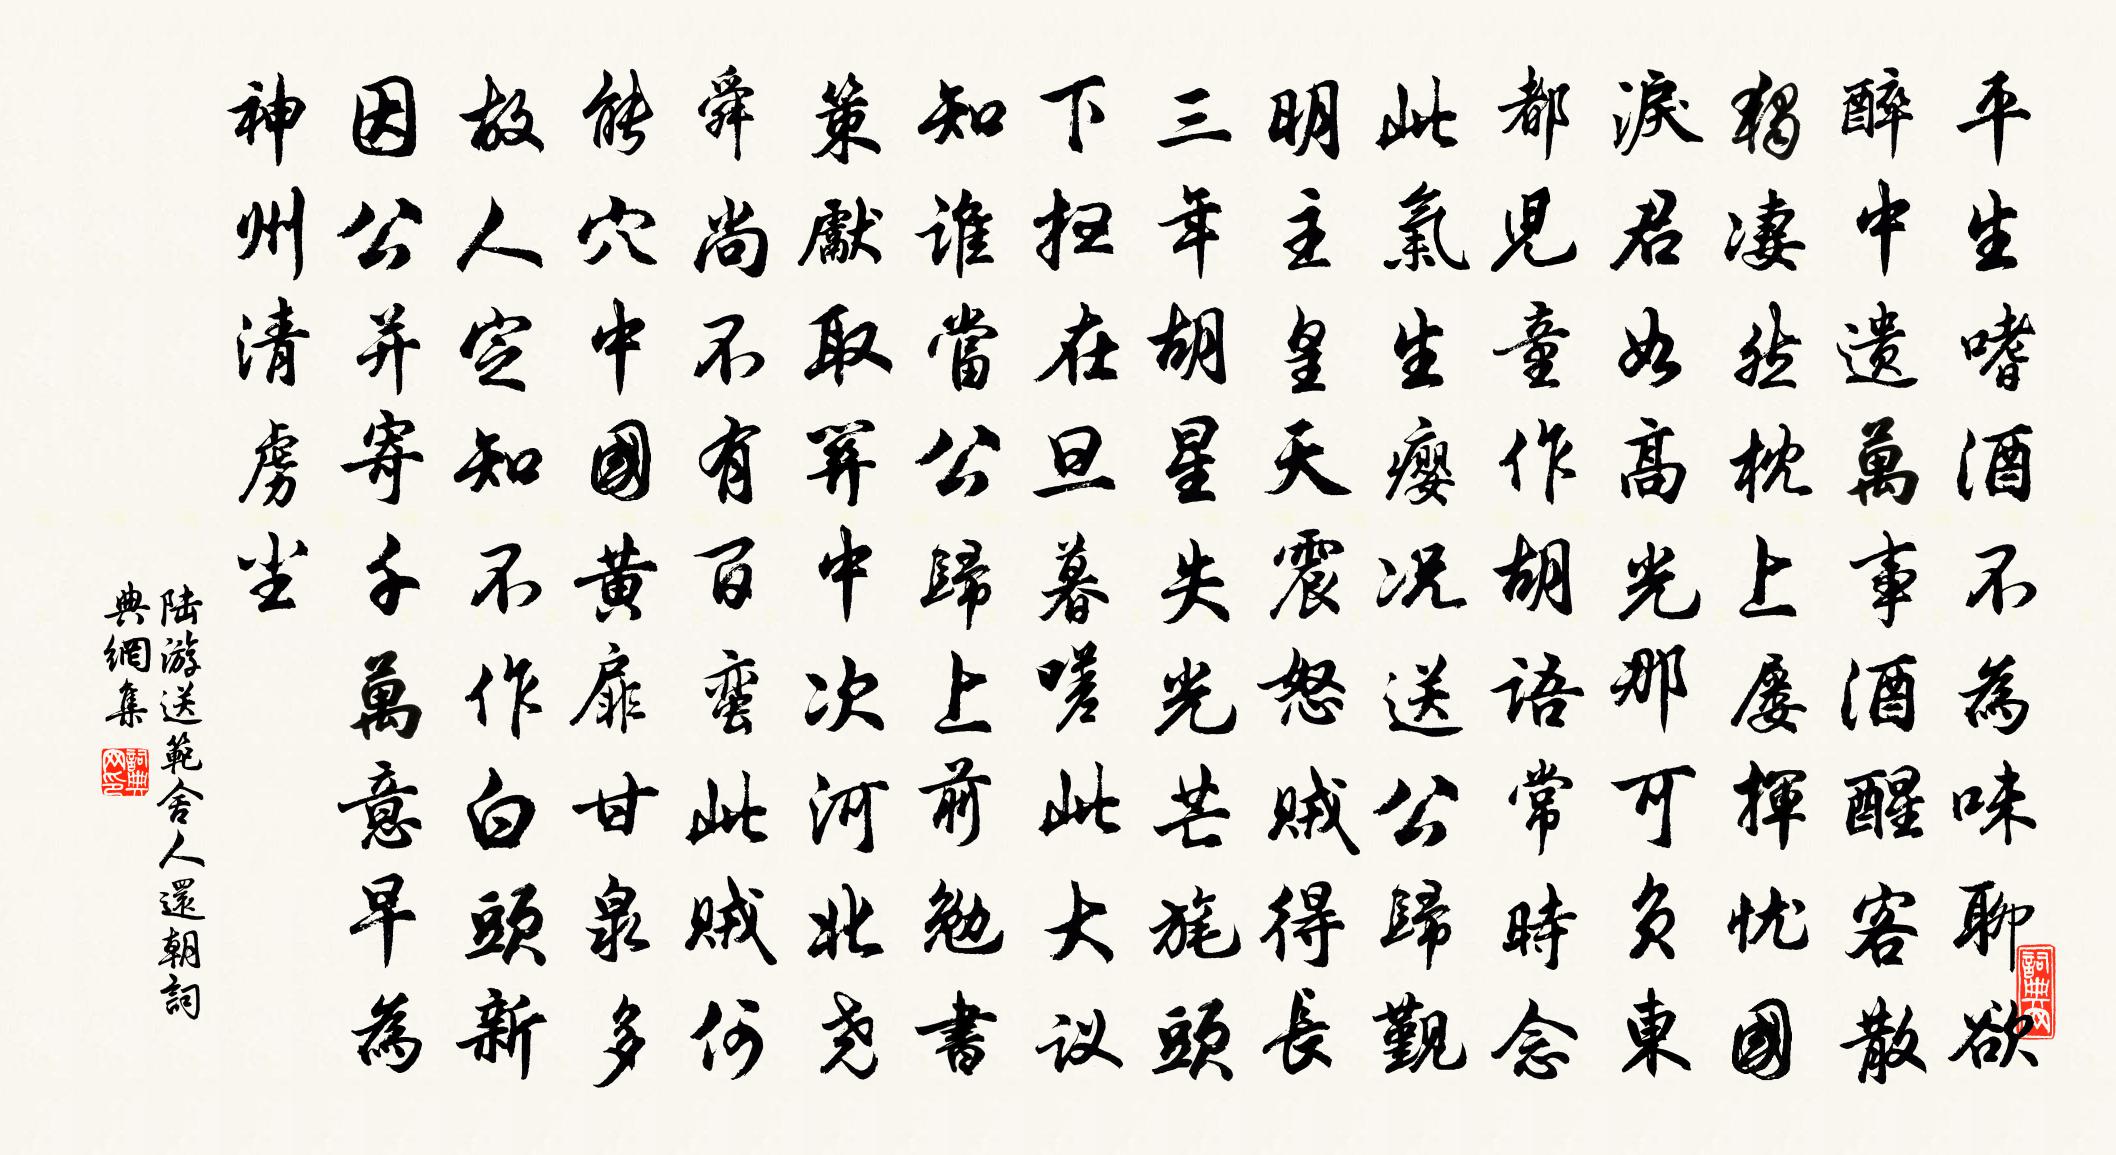 平生嗜酒不為味聊欲
醉中遺萬事酒醒客散
獨凄然枕上屢揮忧國
淚君如高光那可負東
都兒童作胡語常時念
此氣生癭况送公歸覲
明主皇天震怒賊得長
三年胡星失光芒旄頭
下扫在旦暮嗟此大议
知誰當公歸上前勉書
策獻取關中次河北堯
舜尚不有百蛮此賊何
能穴中國黄扉甘泉多
故人定知不作白頭新
因公并寄千萬意早為
神州清虏尘
陆游送範舍人還朝詞
典網集
詞典网印
詞典网